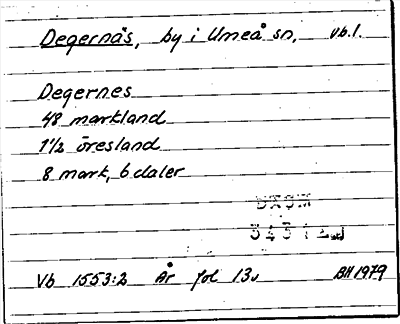 Degernäs, by i Umeå sn, vb.l.
Degernes
48 markland
1 1/2 öresland
8 mark, 6 daler
DXSM
Vb 1553:2 År fol 13v BH 1979